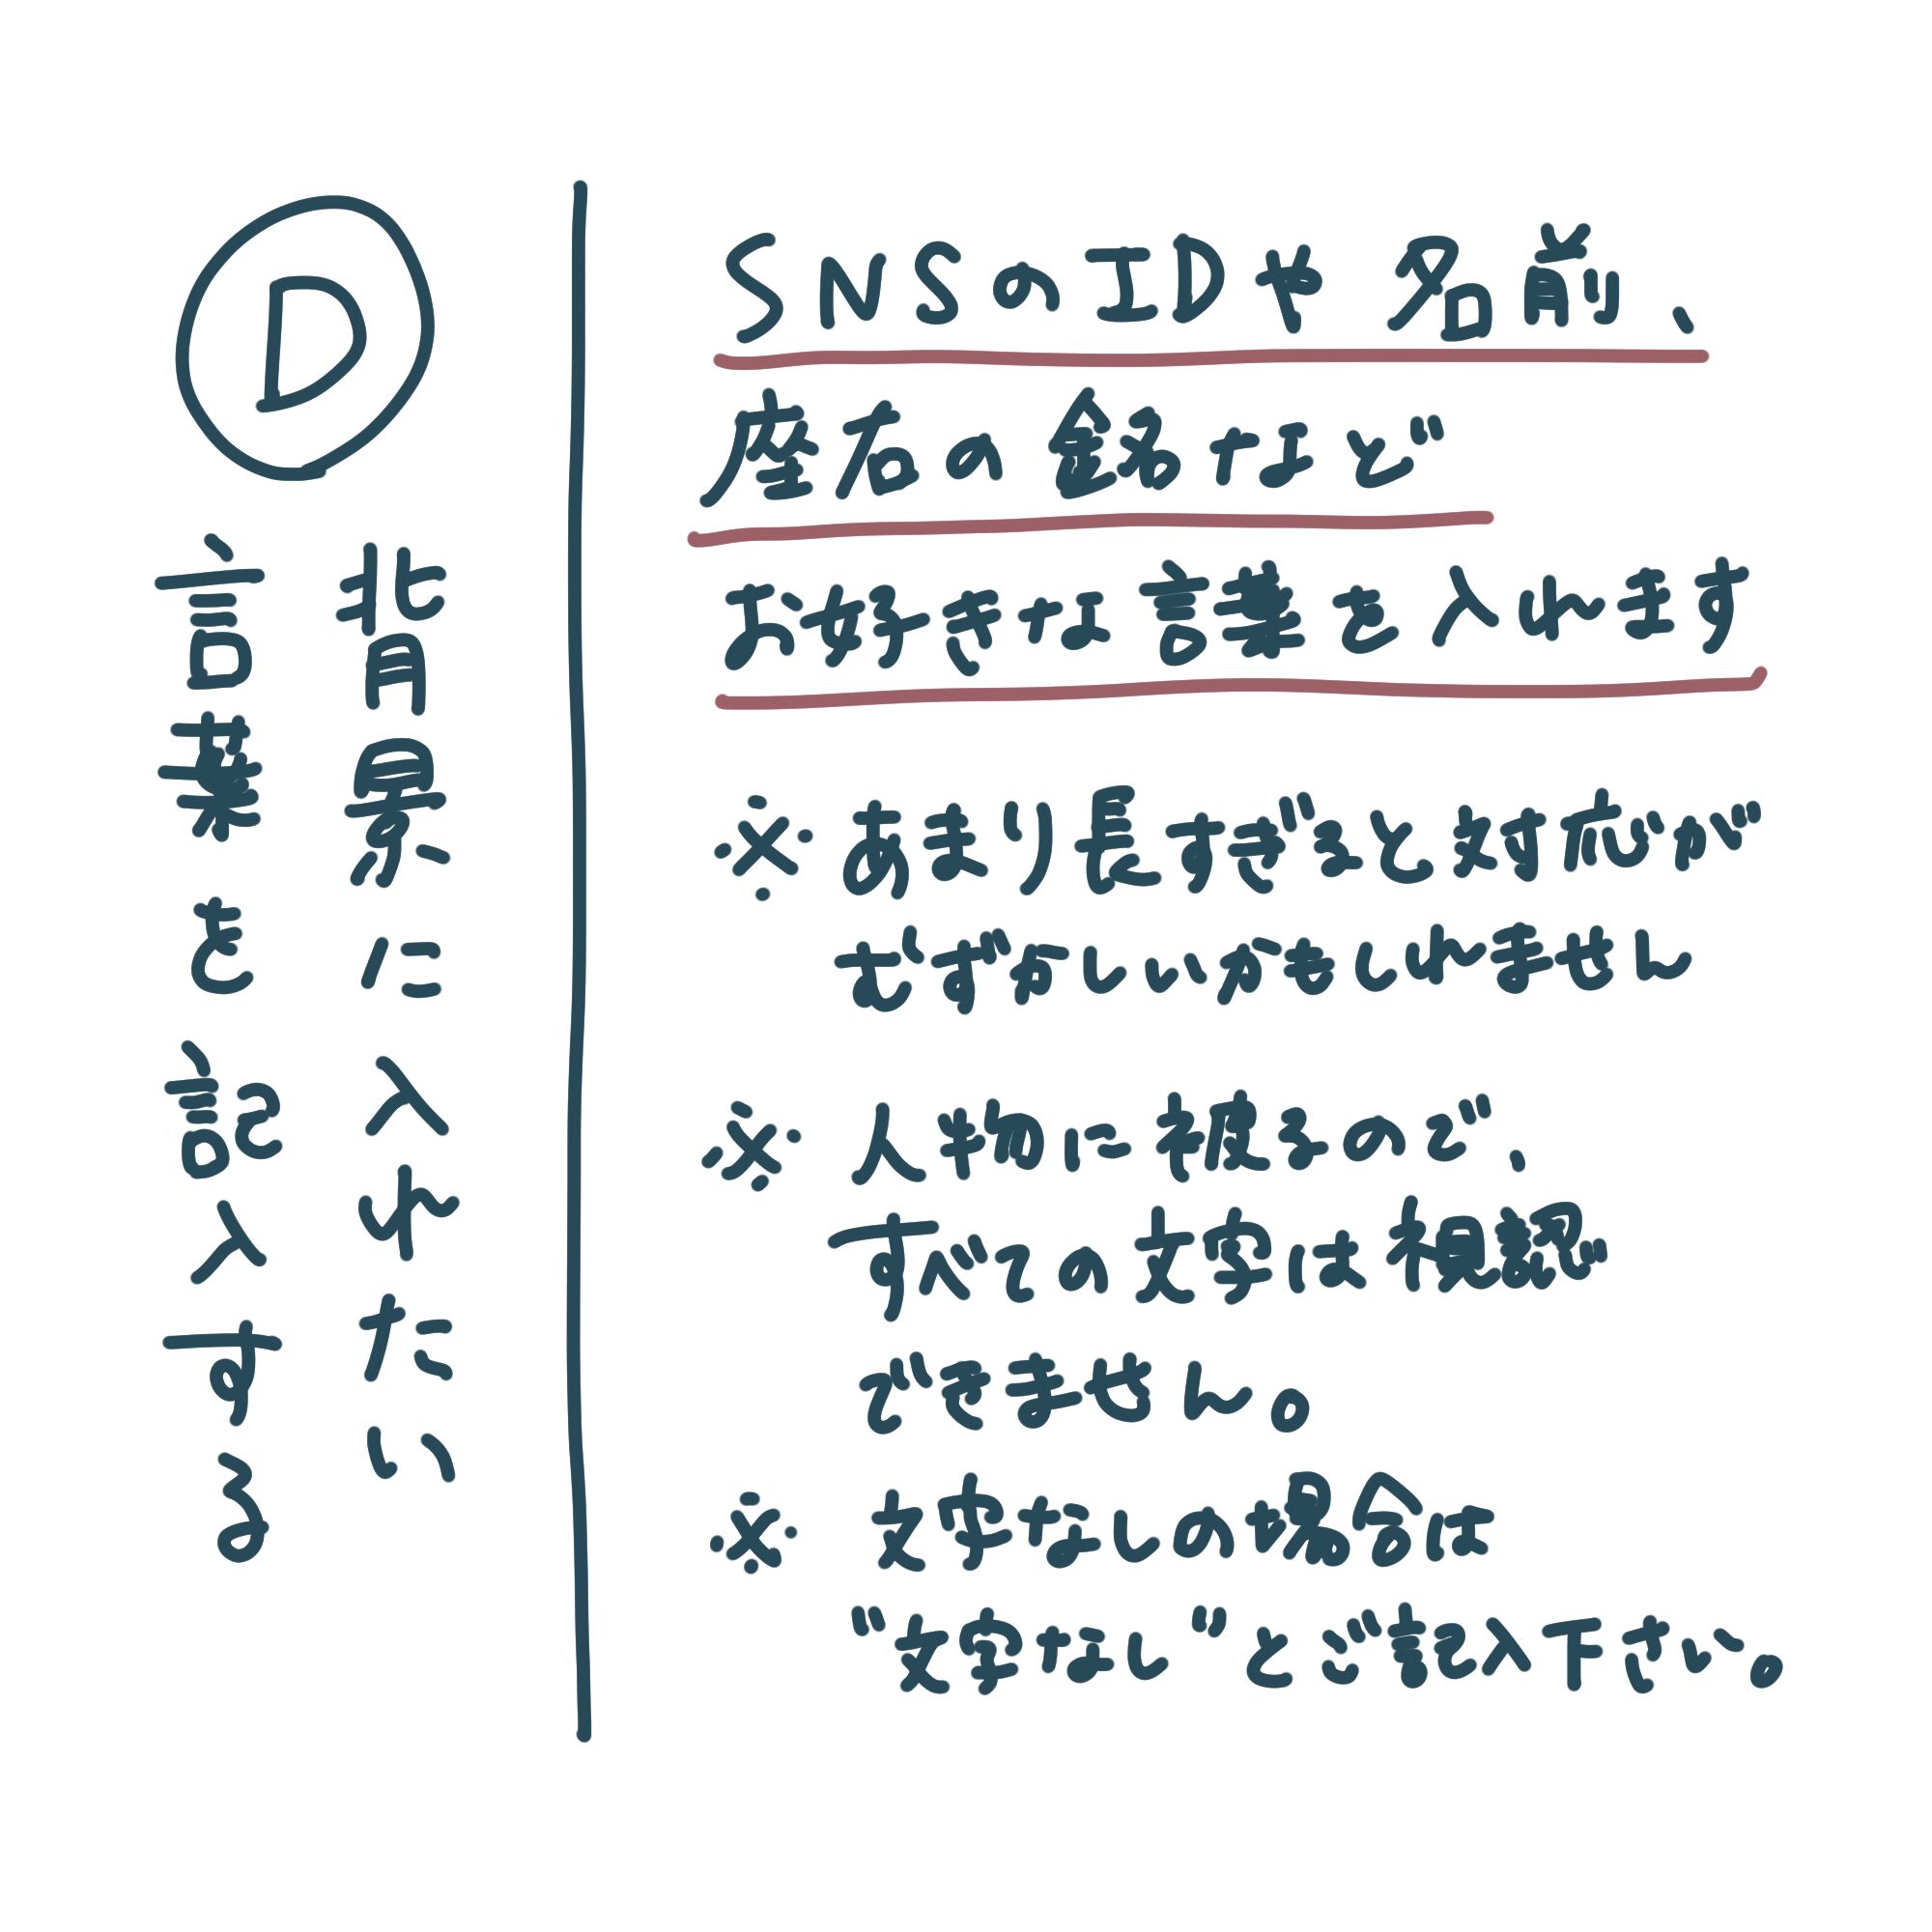 D
背景に入れたい
言葉を記入する
SNSのIDや名前、
座右の銘など
お好きな言葉を入れます
※あまり長すぎると対応が
むずかしいかもしれません
※人物に被るので、
すべての文字は視認
できません。
※文字なしの場合は
"文字なし"とご記入下さい。